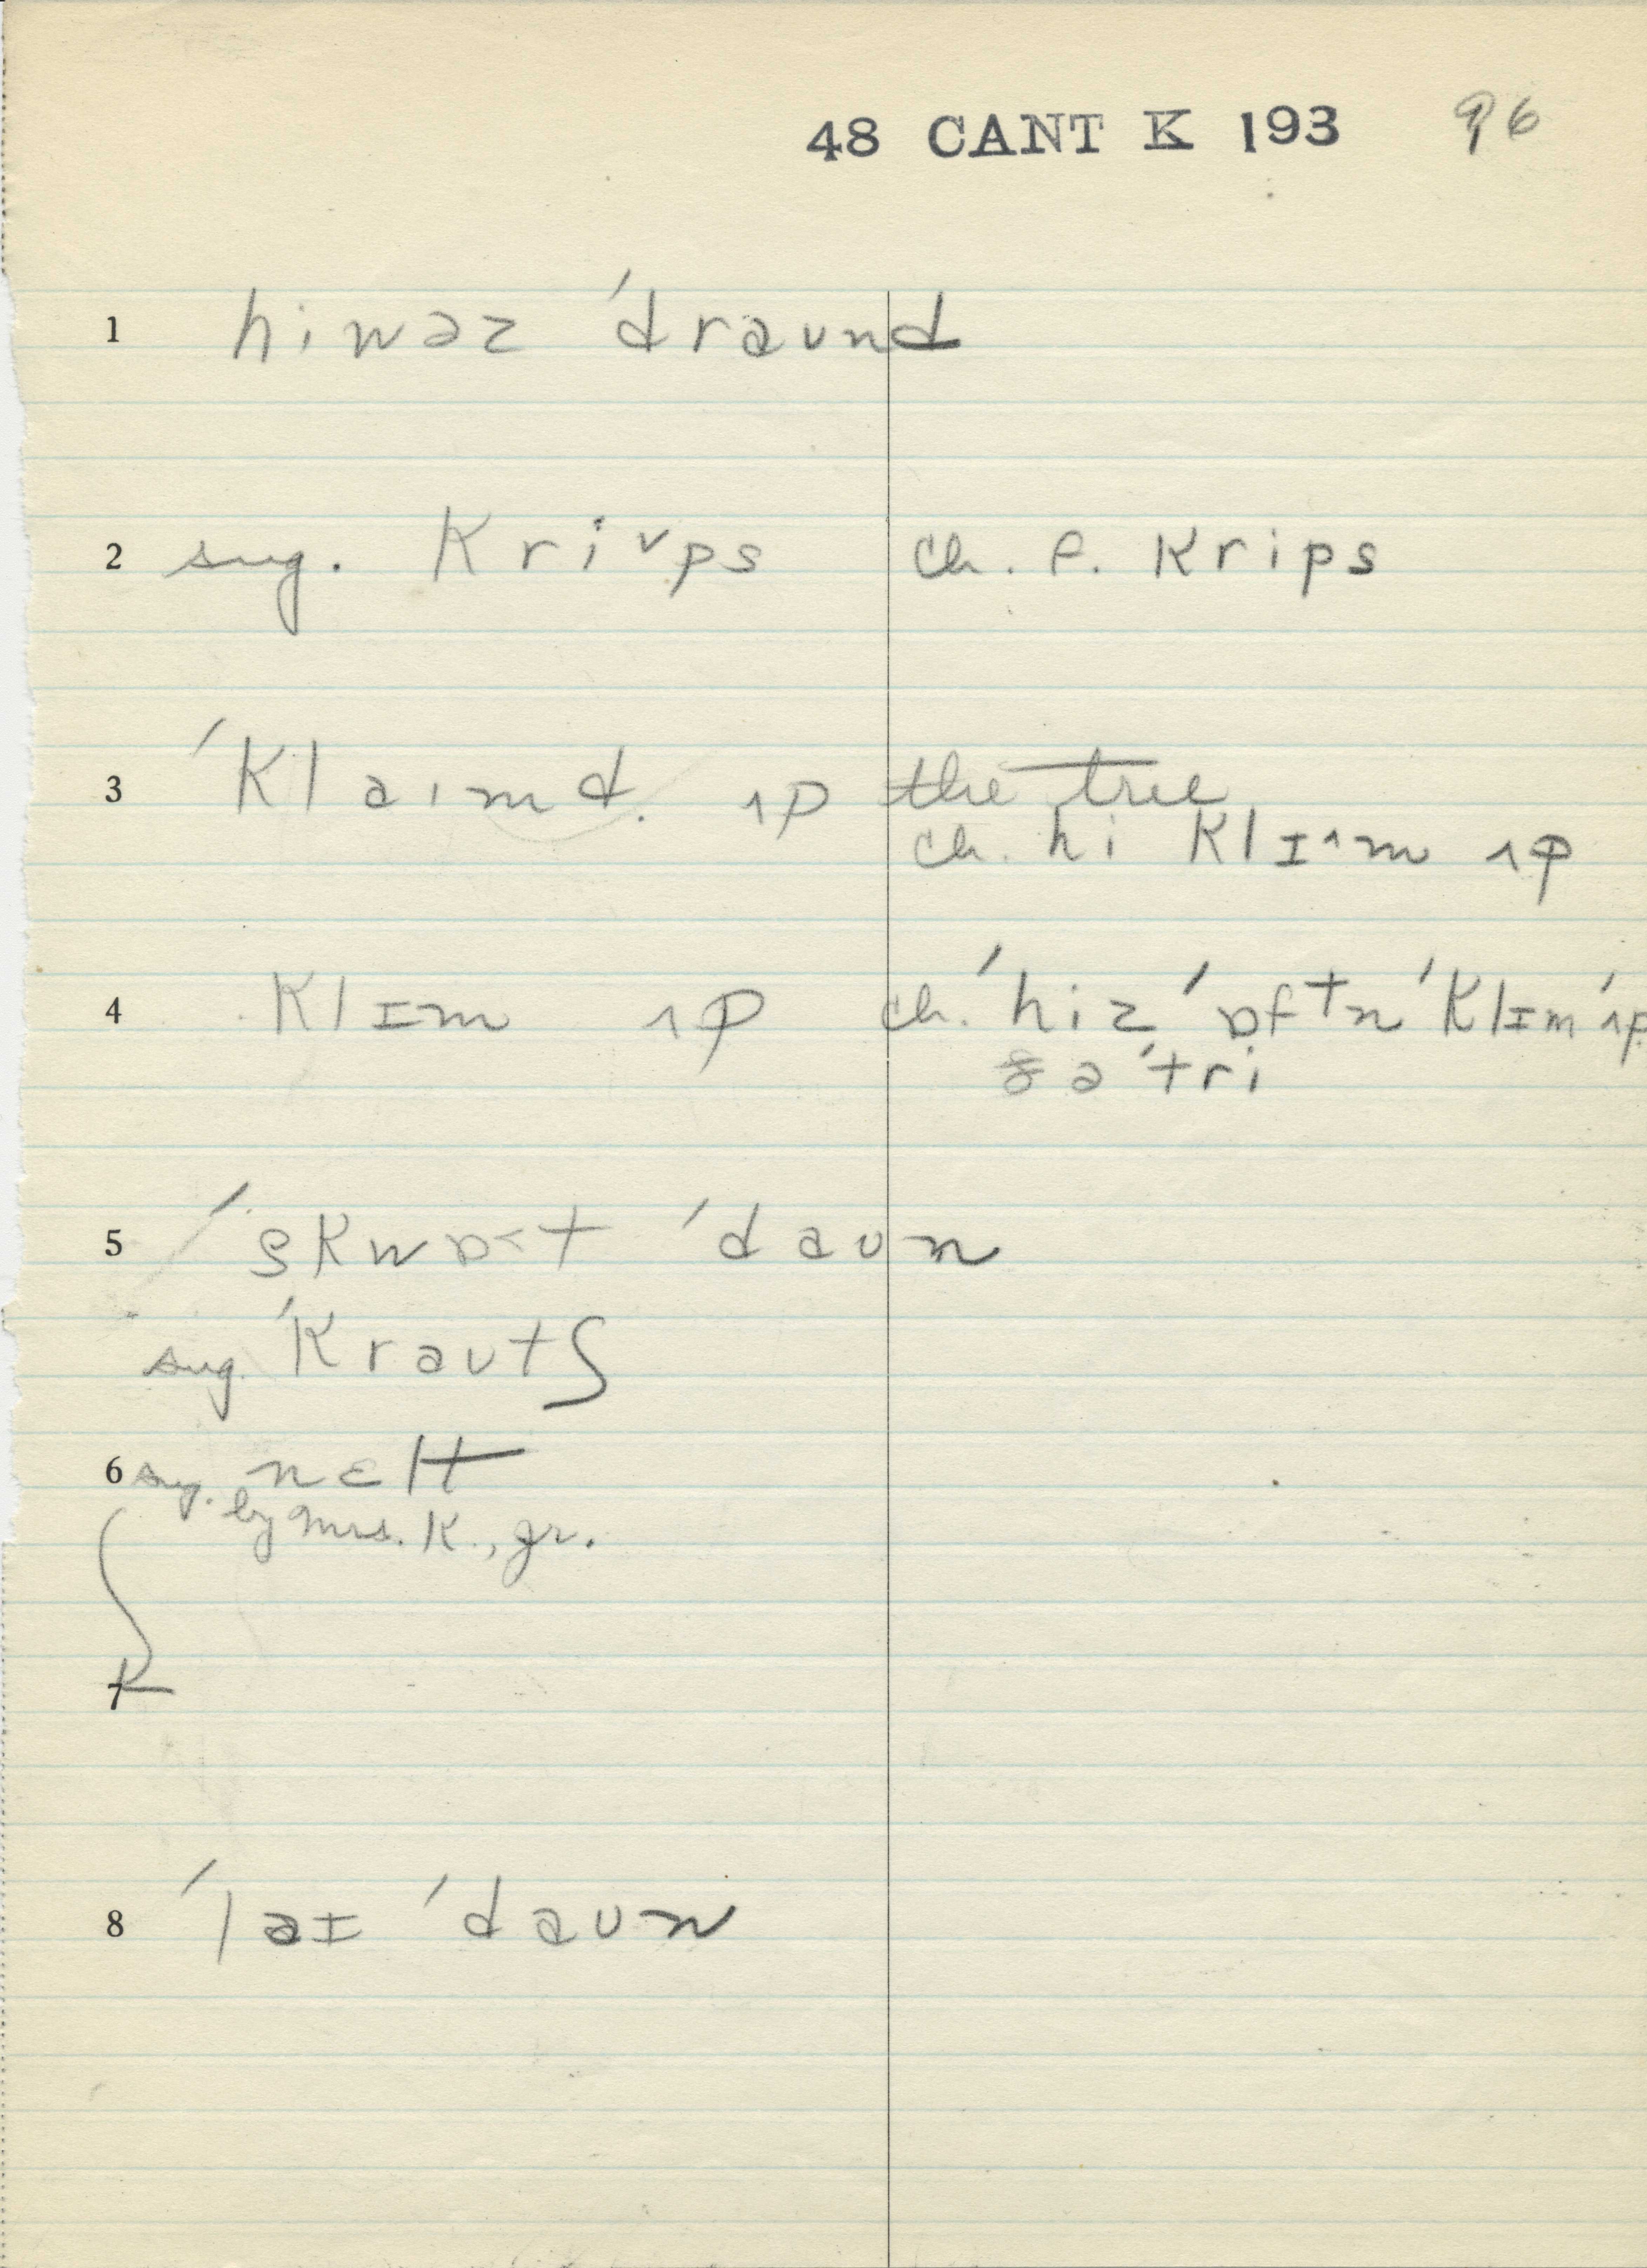 48 CANT K 193 96
1 hiwəz ˈdraund
2 sug. Kriᵛps ch. e. Krips
3 ˈKlaimd. ʌp the tree
ch. hi Klɪ^m ʌp
4 Klɪm ʌp ch. ˈhiz ˈɒftn ˈKlɪm ˈʌp
ðəˈtri
5 ˈskwɒ<t ˈdaun
sug. ˈKrautʃ
6 sug. nɛlt
by Mrs. K., gr.
7
8 ˈlaɪ ˈdaun